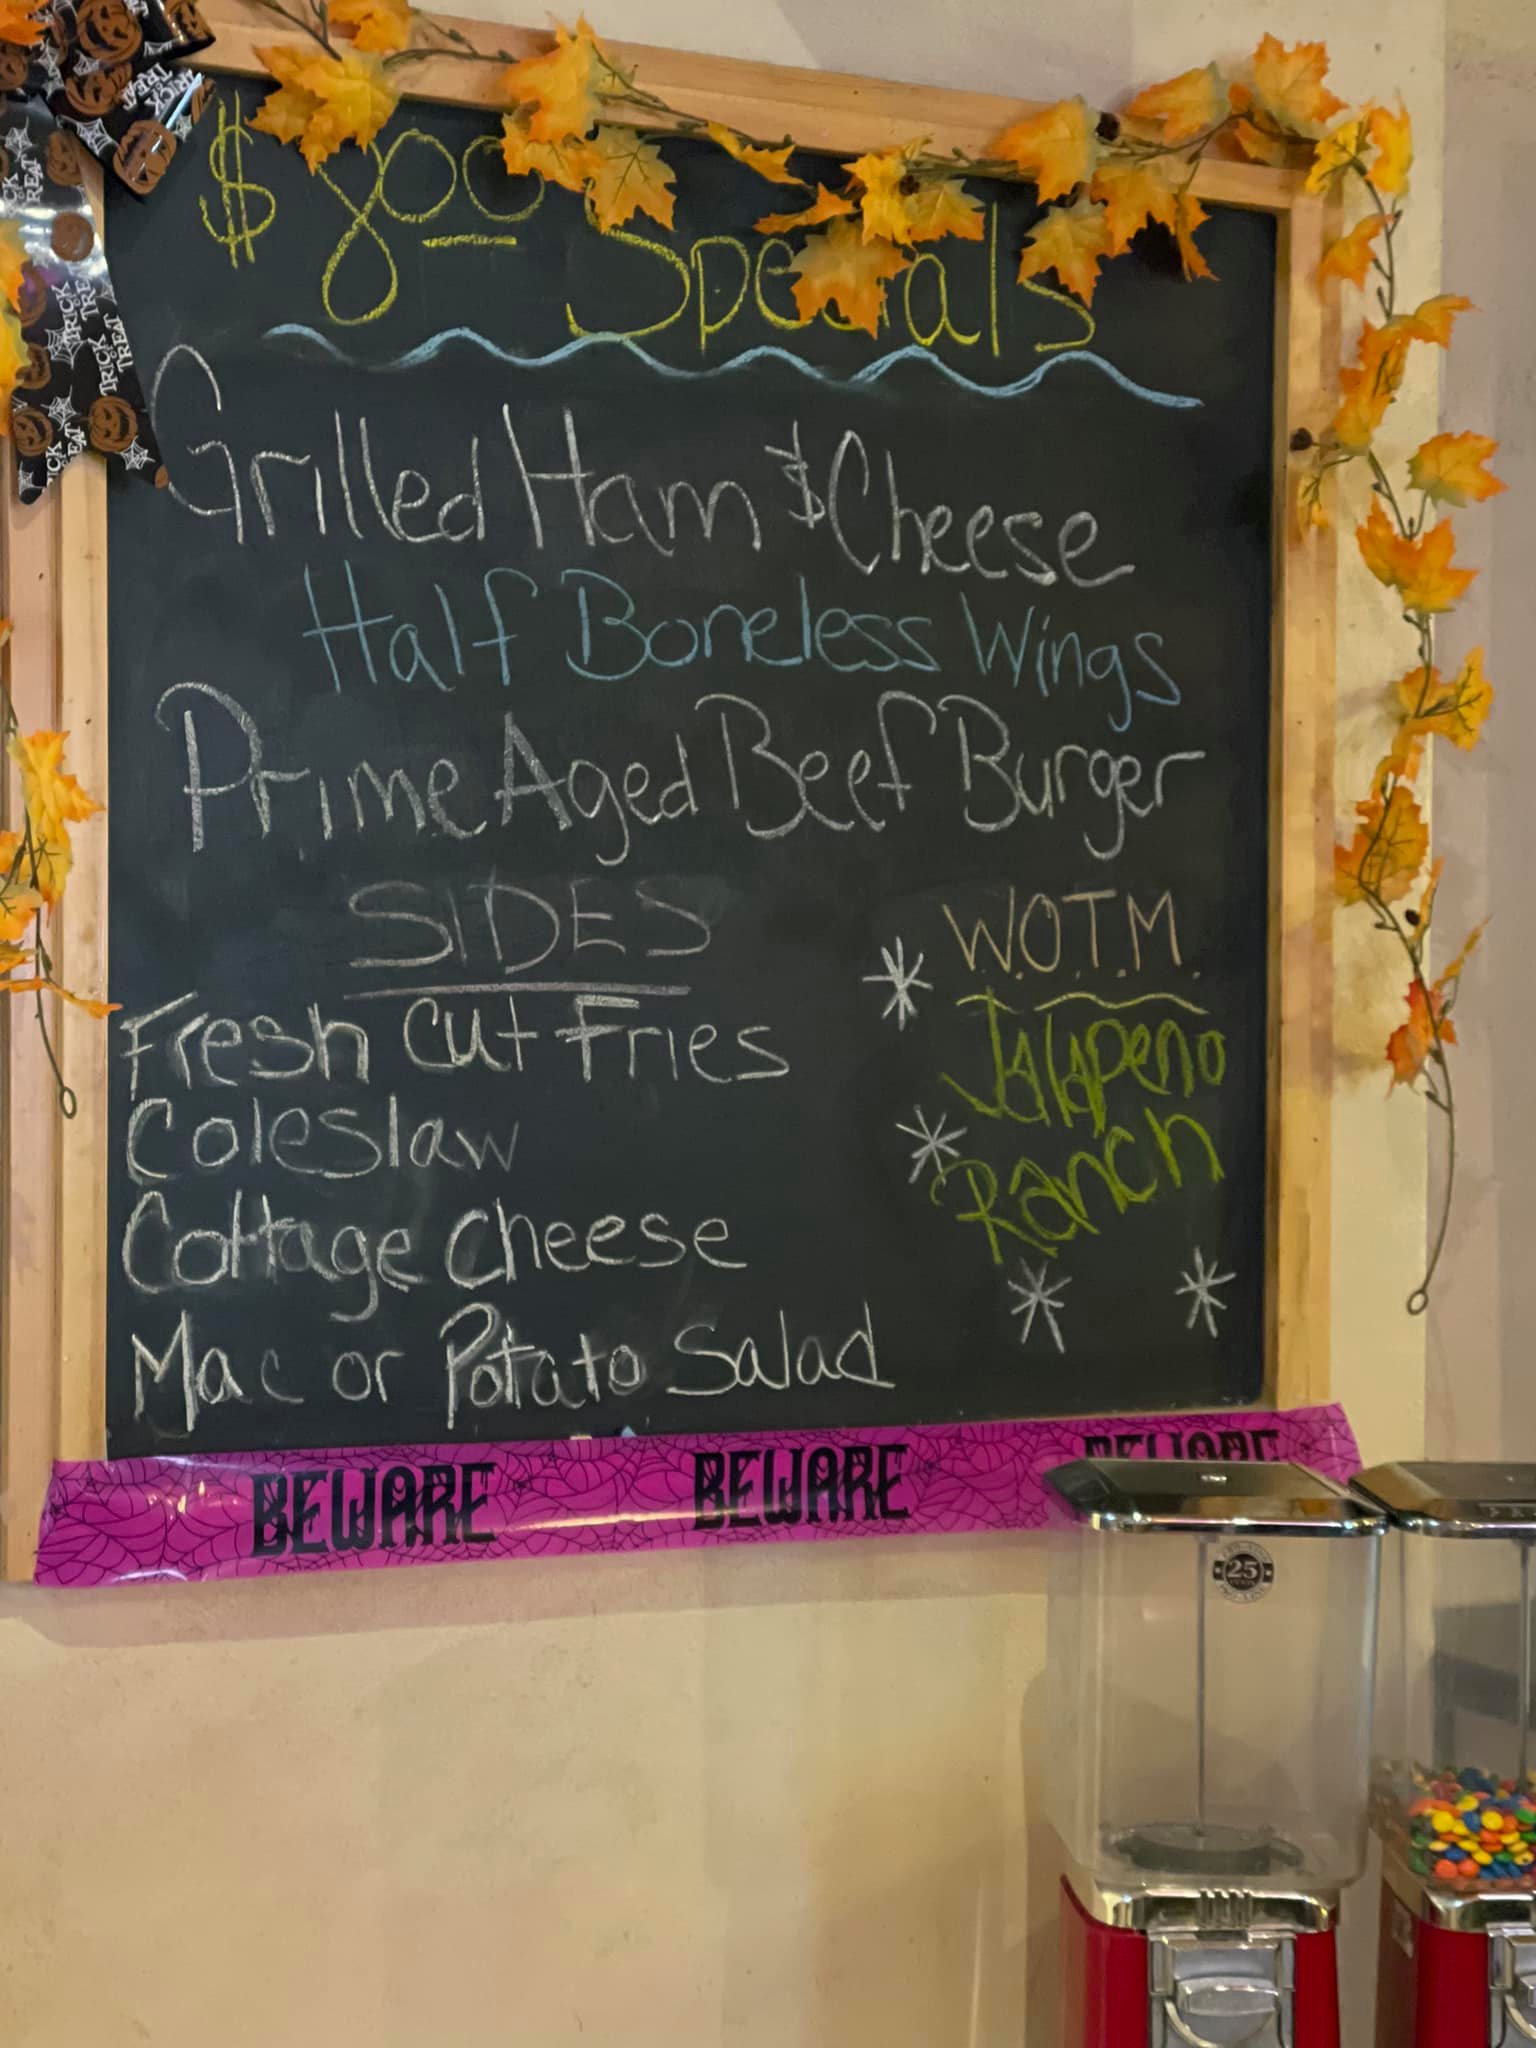 $8.00 Specials
Grilled Ham & Cheese
Half Boneless Wings
Prime Aged Beef Burger
SIDES
Fresh Cut Fries
Coleslaw
Cottage Cheese
Mac or Potato Salad
W.O.T.M.
Jalapeno
Ranch
BEWARE BEWARE BEWARE
TRICK
TREAT
TRICK
TREAT
25